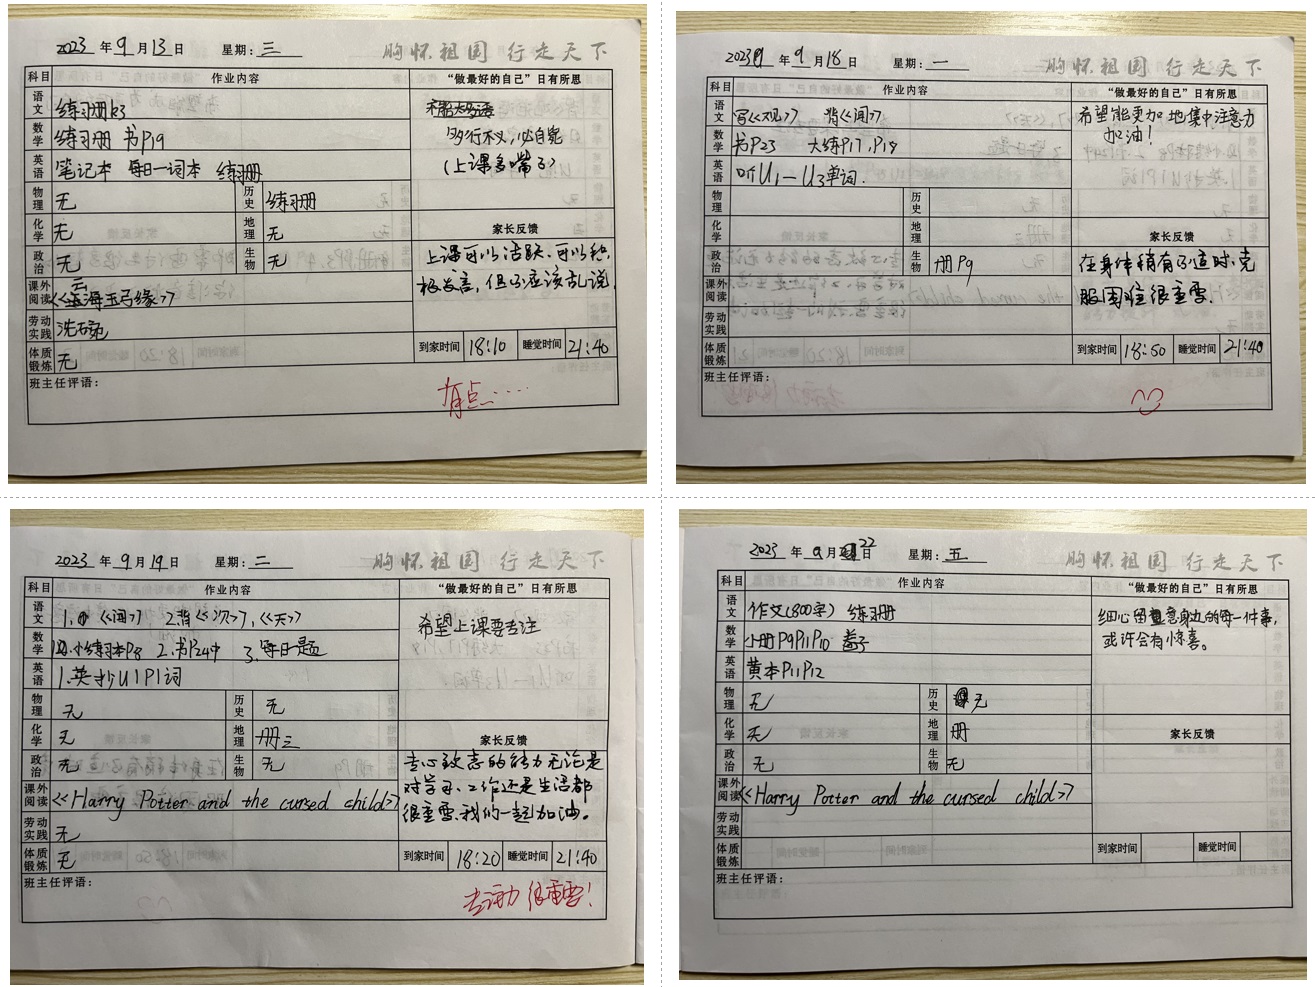 2023 年 9 月 13 日 星期: 三 胸怀祖国 行走天下
科目 作业内容 “做最好的自己”日有所思
语文 练习册P.3
多行不义,必自毙
数学 练习册 书P19
(上课多嘴了)
英语 笔记本 每日一词本 练习册
物理 无 历史 练习册
化学 无 地理 无 家长反馈
政治 无 生物 无
上课可以活跃、可以积
极发言,但不应该乱说
课外阅读 《云海玉弓缘》
劳动实践 洗碗
体质锻炼 无 到家时间 18:10 睡觉时间 21:40
班主任评语:
有点……
2023 年 9 月 18 日 星期: 一 胸怀祖国 行走天下
科目 作业内容 “做最好的自己”日有所思
语文 写《观》 背《闻》
希望能更加地集中注意力
加油!
数学 书P23 大练P17,P18
英语 听U1—U3单词.
物理 历史
化学 地理 家长反馈
政治 生物 册P9
在身体稍有不适时,克
服困难很重要.
课外阅读
劳动实践
体质锻炼 到家时间 18:50 睡觉时间 21:40
班主任评语:
2023 年 9 月 19 日 星期: 二 胸怀祖国 行走天下
科目 作业内容 “做最好的自己”日有所思
语文 《闻》 2.背《次》,《天》
希望上课要专注
数学 小练习本P8 2.书P24中 3.每日一题
英语 1.英抄U1P1词
物理 无 历史 无
化学 无 地理 册三 家长反馈
政治 无 生物 无
专心致志的能力无论是
对学习、工作还是生活都
很重要.我们一起加油。
课外阅读 《Harry Potter and the cursed child》
劳动实践 无
体质锻炼 无 到家时间 18:20 睡觉时间 21:40
班主任评语:
专注力很重要!
2023 年 9 月 22 日 星期: 五 胸怀祖国 行走天下
科目 作业内容 “做最好的自己”日有所思
语文 作文(800字) 练习册
细心留意身边的每一件事,
或许会有惊喜。
数学 小册P9P11P10
英语 黄本P11P12
物理 无 历史 无
化学 无 地理 册 家长反馈
政治 无 生物 无
课外阅读 《Harry Potter and the cursed child》
劳动实践
体质锻炼 到家时间 睡觉时间
班主任评语: